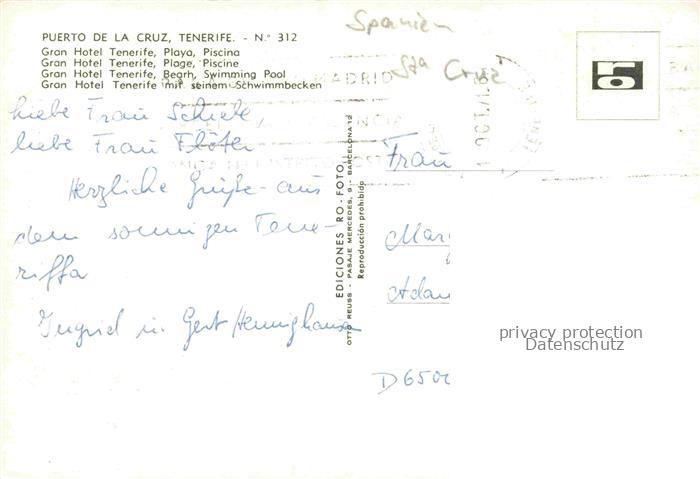 PUERTO DE LA CRUZ, TENERIFE. - N.° 312
Gran Hotel Tenerife, Playa, Piscina
Gran Hotel Tenerife, Plage, Piscine
Gran Hotel Tenerife, Beach, Swimming Pool
Gran Hotel Tenerife mit seinem Schwimmbecken
Spanien
Sta Cruz
MADRID
OCT.71
ro
liebe Frau Schiele,
liebe Frau Flöter
Herzliche Grüße aus
dem sonnigen Tene-
riffa
Ingrid u. Gert Hennighausen
EDICIONES RO-FOTO
OTTO REUSS - PASAJE MERCEDES, 9 - BARCELONA 12
Reproducción prohibido
Frau
Mar
Adam
D 650
privacy protection
Datenschutz